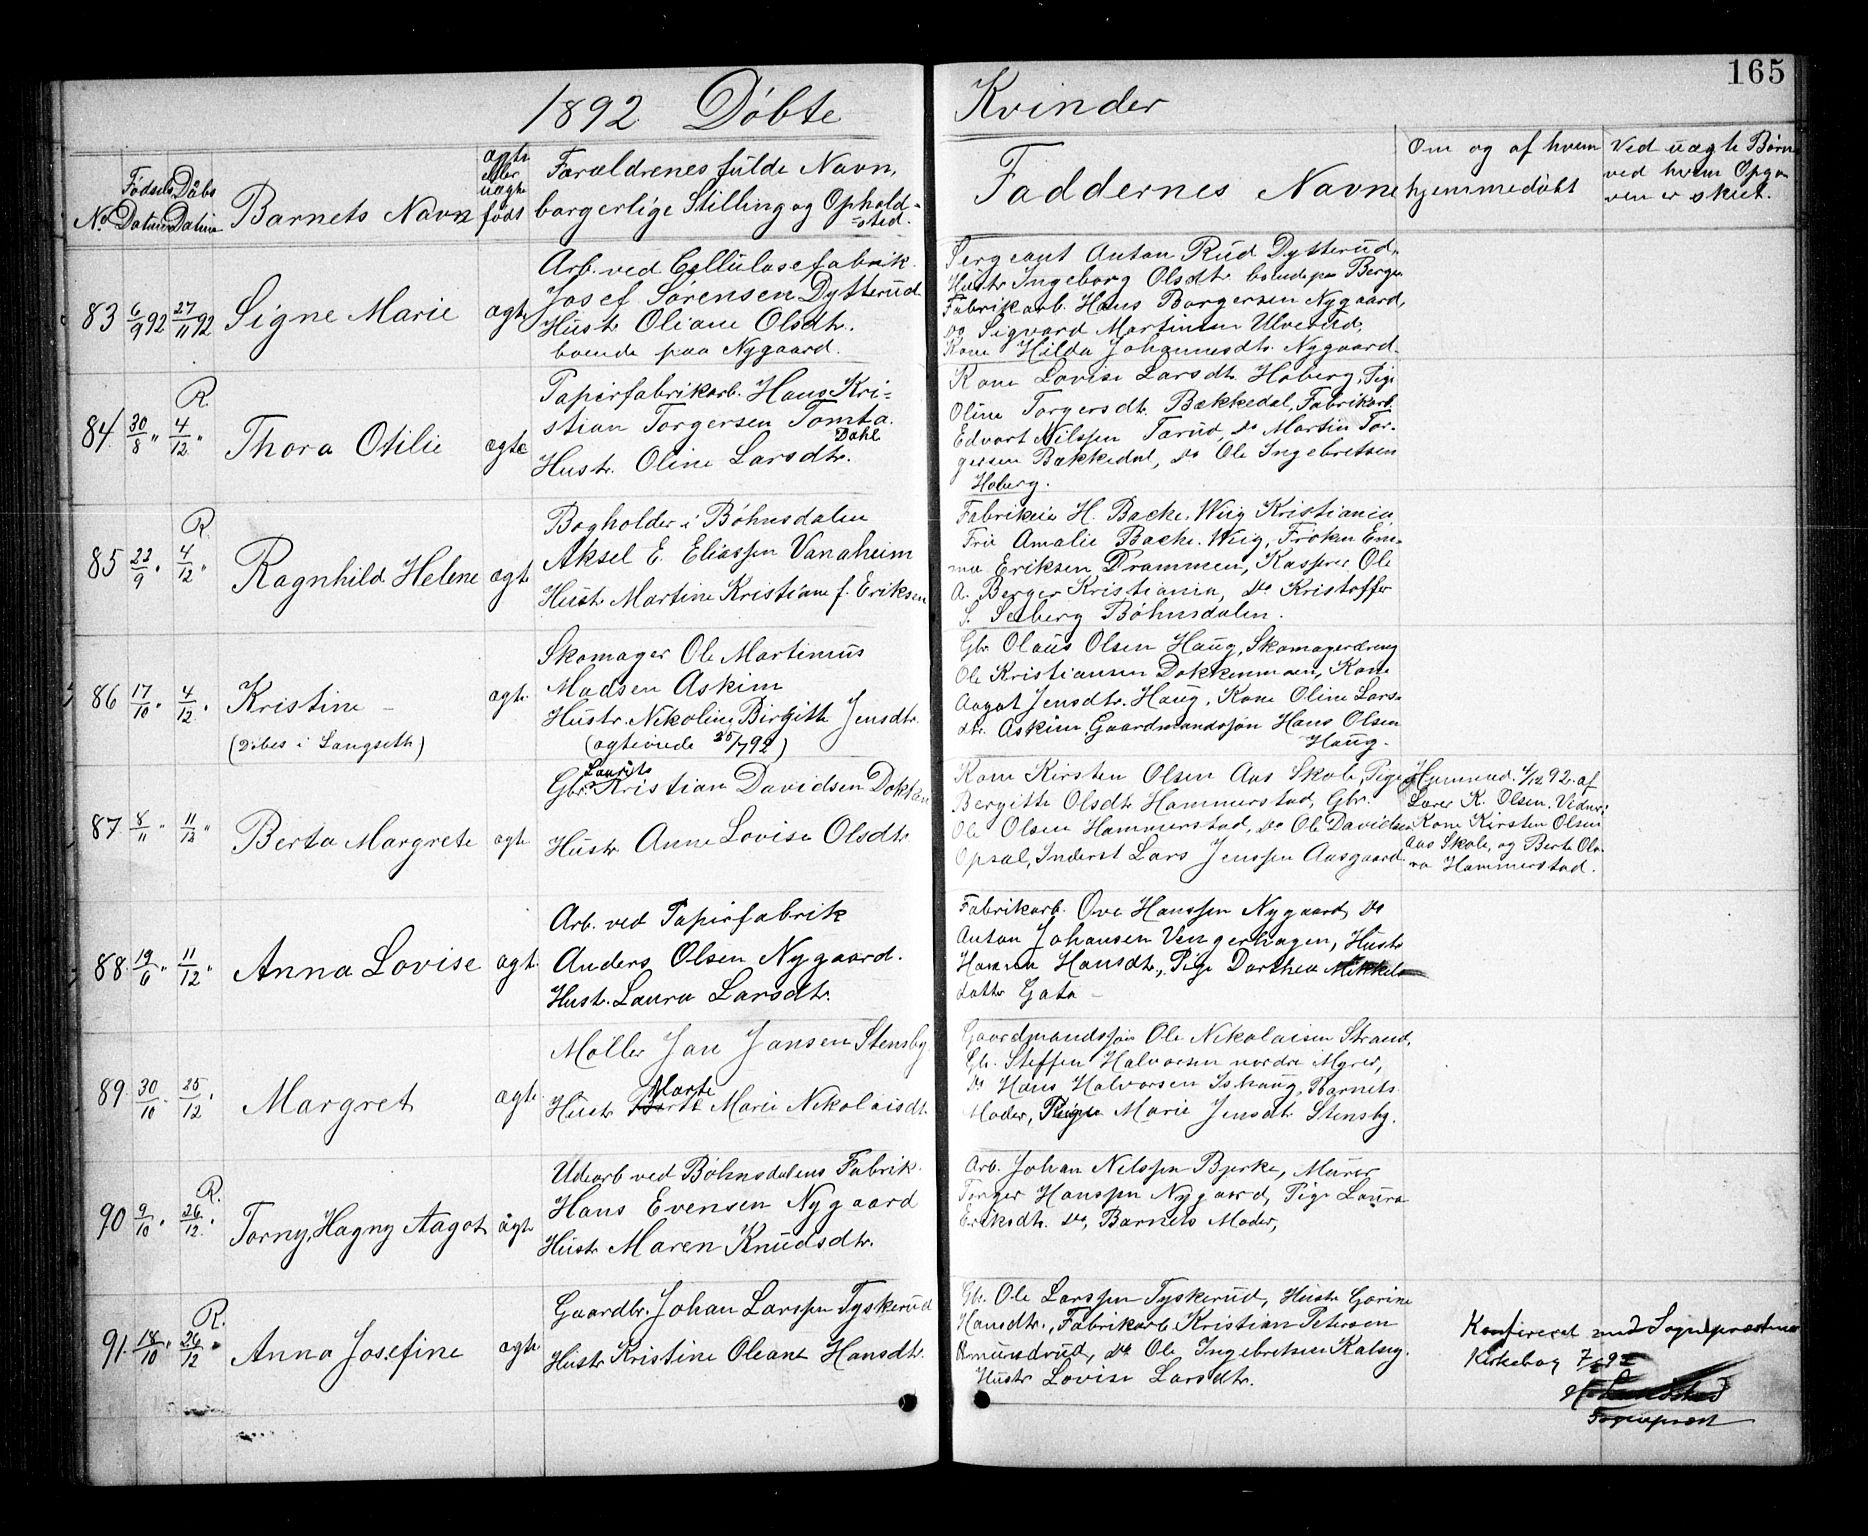 165
1892 Döbte Kvinder
No Fødsels Datum Daabs Datum Barnets Navn ægte eller uægte født Forældrenes fulde Navn, borgerlige Stilling og Opholdsted. Faddernes Navne Om og af hvem hjemmedöbt Ved uægte Børn ved hvem Opgaven er skeet.
83 6/9 92 27/11 92 Signe Marie ægte
Arb. ved Cellulosefabrik
Josef Sørensen Dytterud
Hustr Oliane Olsdtr.
boende paa Nygaard.
Sergeant Anton Rud Dytterud,
Hustr Ingeborg Olsdtr boende paa Berger
Fabrikarb. Hans Borgersen Nygaard,
do Sigvard Martinsen Ulverud,
Kone Hilda Johannesdtr. Nygaard.
84. 30/8 " R. 4/12 " Thora Otilie ægte
Papirfabrikarb. Hans Kri-
stian Torgersen Tomta.
Dahl
Hustr. Oline Larsdtr.
Kone Lovise Larsdtr. Hoberg, Pige
Oline Torgersdtr. Bækkedal, Fabrikarb.
Edvart Nilssen Tørud, do Martin Tor-
gersen Bækkedal, do Ole Ingebretsen
Hoberg.
85 22/9 " R. 4/12 " Ragnhild Helene ægte
Bogholder i Böhnsdalen
Aksel E. Eliassen Vanaheim
Hustr Martine Kristiane f. Eriksen
Fabrikeier H. Backe-Wiig Kristiania
Frue Amalie Backe-Wiig, Frøken Em-
ma Eriksen Drammen, Kasserer Ole
A. Berger Kristiania, do Kristoffer
S. Seeberg Böhnsdalen.
86 17/10 " 4/12 " Kristine -
(Döbes i Langseth)
ægte
Skomager Ole Martinus
Madsen Askim
Hustr. Nikoline Birgitte Jensdtr.
(ægteviede 25/7 92)
Gbr. Olaus Olsen Haug, Skomagerdreng
Ole Kristiansen Dokkenmoen, Kone
Aagot Jensdtr. Haug, Kone Oline Lars-
dtr. Askim Gaardmandssön Hans Olsen
Haug.
87. 8/11 " 11/12 " Berta Margrete ægte
Laurits
Gbr. Kristian Davidsen Dokken
Hustr Anne Lovise Olsdtr
Kone Kirsten Olsen Aas Skole, Pige
Bergitte Olsdtr Hammerstad, Gbr.
Ole Olsen Hammerstad, do Ole Davidsen
Opsal, Inderst Lars Jenssen Aasgaard.
Hjemmed. 4/12 92. af
Lærer K. Olsen. Vidner:
Kone Kirsten Olsen
Aas Skole, og Berte Ols-
Hammerstad.
88. 19/6 " 11/12 " Anna Lovise ægt.
Arb. ved Papirfabrik
Anders Olsen Nygaard.
Hustr. Laura Larsdtr.
Fabrikarb. Ove Hanssen Nygaard, do
Anton Johansen Vengerhagen, Hustr
Hanna Hansdtr., Pige Dorthea Mikkels-
datter Gata -
89. 30/10 . 25/12 . Margret ægte
Møller Jan Jansen Stensby
Marte
Hustr Berte Marie Nikolaisdtr.
Gaardmandssön Ole Nikolaisen Strand,
Gbr. Steffen Halvorsen nordre Myrer,
do Hans Halvorsen Ishaug, Barnets
Moder, Pige Marie Jensdtr. Stensby.
90 9/10 " R. 26/12 " Torny, Hagny Aagot ægte
Udearb ved Böhnsdalens Fabrik
Hans Evensen Nygaard
Hustr Maren Knudsdtr.
Arb. Johan Nilssen Bjerke, Murer
Torger Hanssen Nygaard, Pige Laura
Eriksdtr. do, Barnets Moder,
91. 18/10 " R. 26/12 " Anna Josefine ægte
Gaardbr. Johan Larssen Tyskerud
Hustr Kristine Oleane Hansdtr.
Gbr. Ole Larssen Tyskerud, Hustr Gorine
Hansdtr., Fabrikarb. Kristian Petersen
Amundrud, do Ole Ingebretsen Kalseg.
Hustr Lovise Larsdtr.
Konfereret med Sognepræstens
Kirkebog
Sognepræst